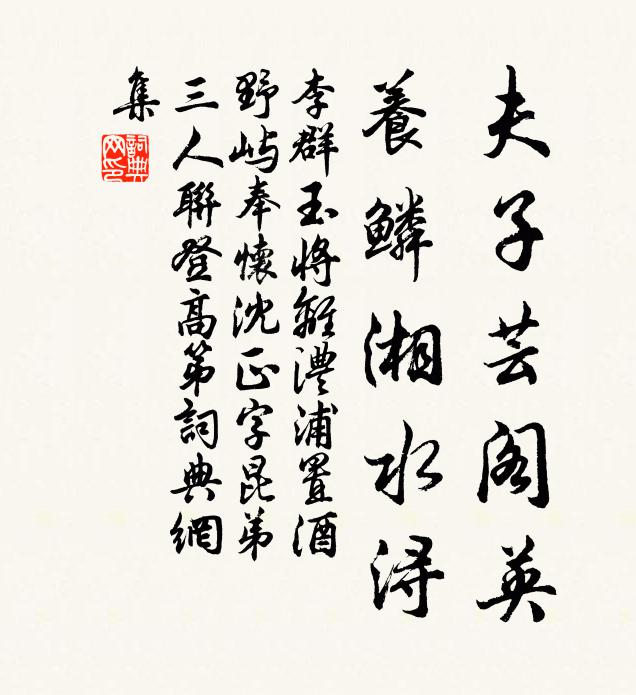 夫子芸阁英
養鱗湘水浔
李群玉將離澧浦置酒
野屿奉懷沈正字昆弟
三人聯登高第詞典網
集
詞典网印